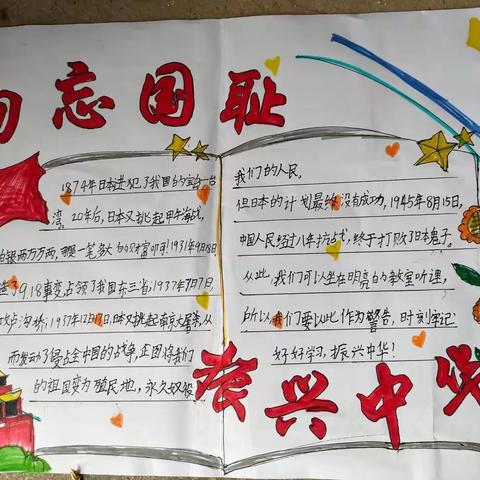 勿忘国耻
1874年日本进犯了我国的宝台一台
湾。20年后,日本又挑起甲午海战,
银两万万两,那是一笔多大的财富啊!1931年9月18日,
造了918事变占领了我国东三省;1937年7月7日,
沟桥;1937年12月13日日本又挑起南京大屠杀,从
而发动了侵占全中国的战争,企图将我们
的祖国变为殖民地,永久奴役
我们的人民。
但日本的计划最终没有成功,1945年8月15日,
中国人民经过八年抗战,终于打败了日本鬼子。
从此,我们可以坐在明亮的教室听课,
所以我们要以此作为警告,时刻牢记
好好学习,振兴中华!
振兴中华